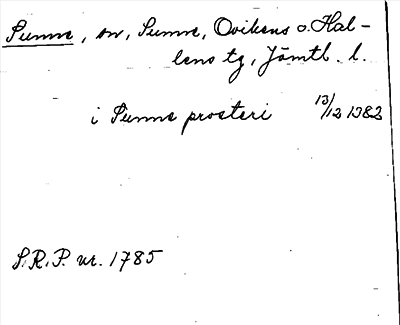 Sunne, sn, Sunne, Ovikens o. Hal-
lens tg, Jämtl. l.
i Sunne prosteri 13/12 1382
S.R.P. nr. 1785